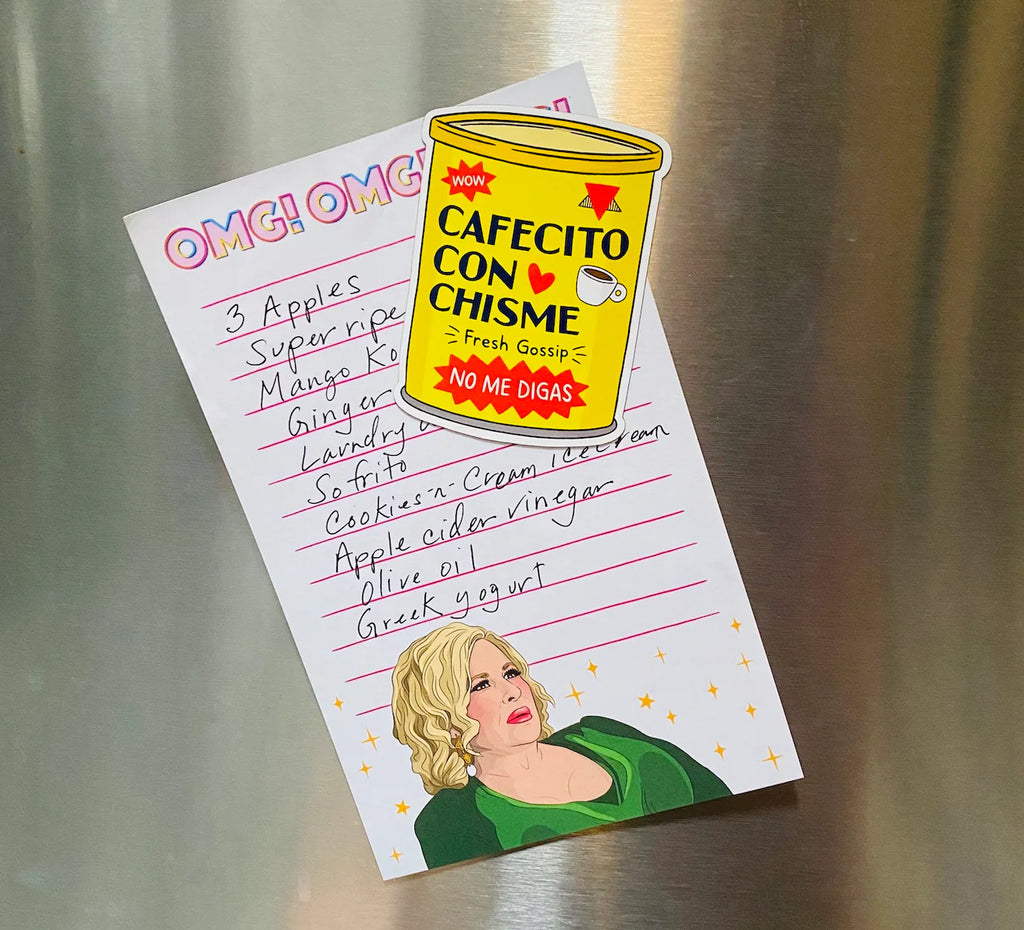 OMG! OMG!
WOW
CAFECITO
CON
CHISME
Fresh Gossip
NO ME DIGAS
3 Apples
Super ripe
Mango Ko
Ginger
Laundry
Sofrito
Cookies-n-Cream icecream
Apple cider vinegar
Olive oil
Greek yogurt